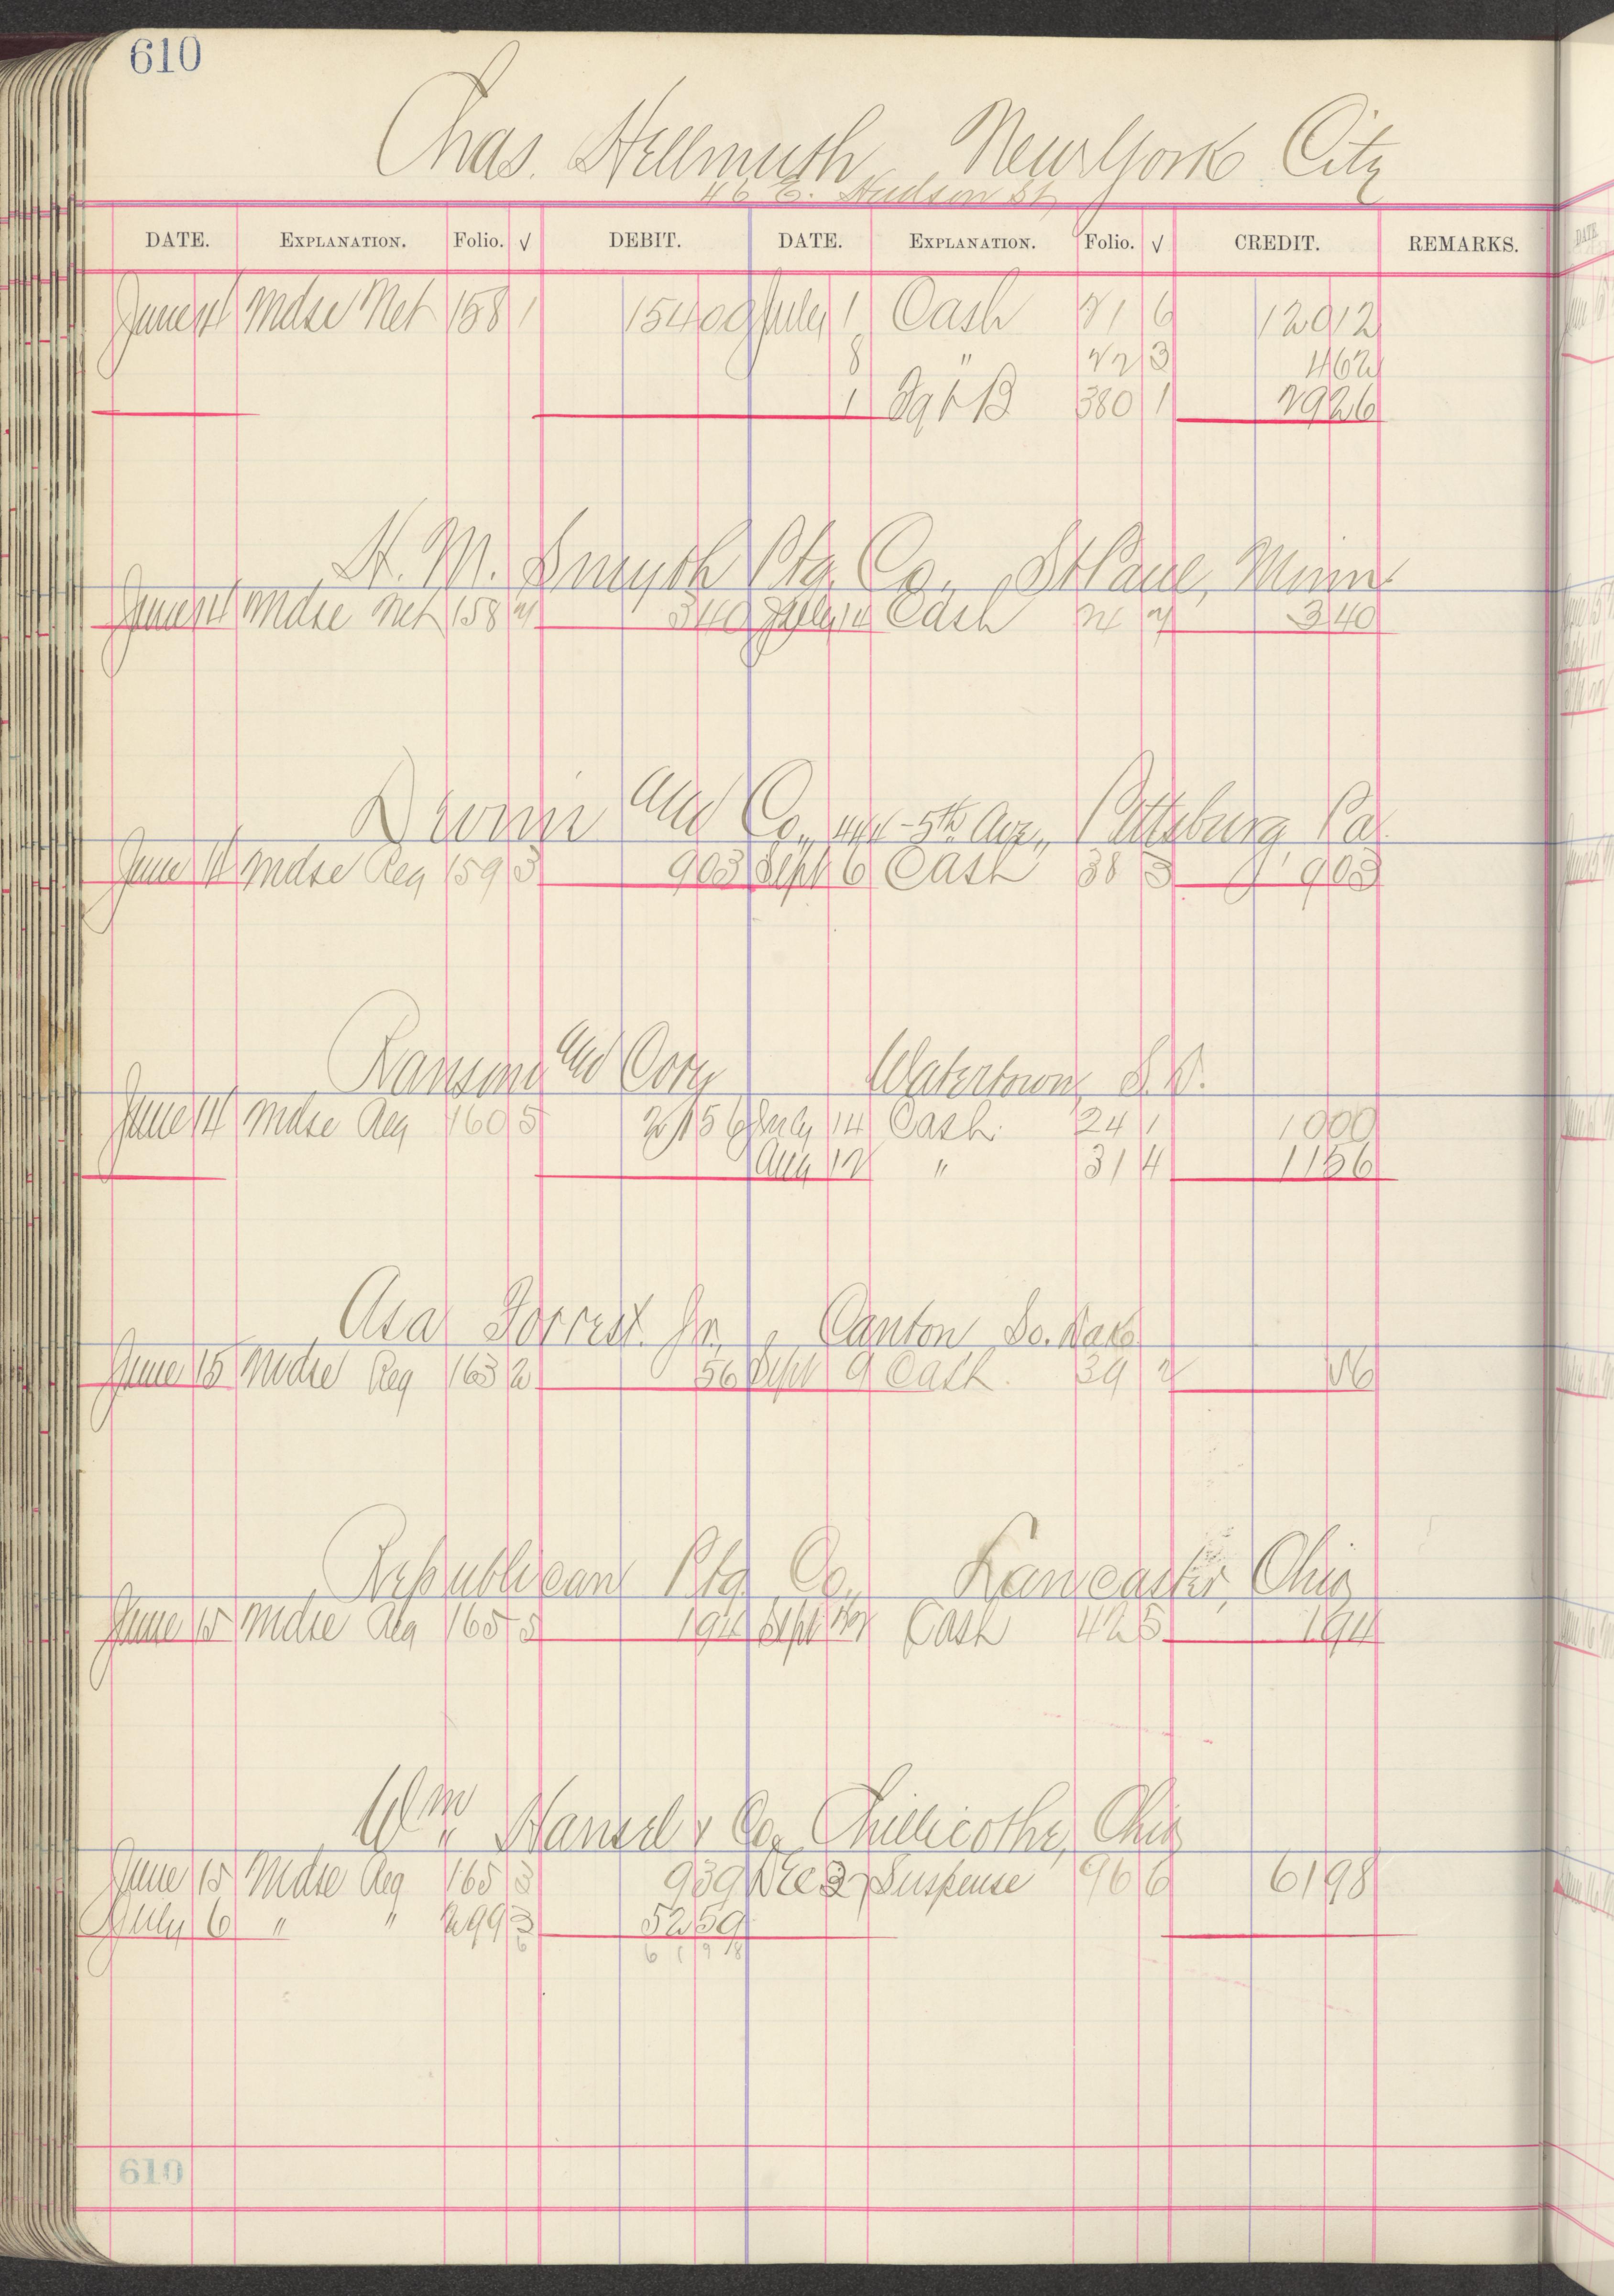 610
Chas. Hellmuth New York City
46 E. Hudson St,
DATE. EXPLANATION. Folio. √ DEBIT. DATE. EXPLANATION. Folio. √ CREDIT. REMARKS.
June 14 Mdse Net 158 1 154 00 July 1 Cash 21 6 120 12
8 " 22 3 4 62
1 380 1 29 26
H. M. Smyth Ptg. Co., St Paul, Minn
June 14 Mdse Net 158 2 3 40 July 14 Cash 24 2 3 40
and Co., 444 - 5th Ave., Pittsburg Pa
June 14 Mdse Reg 159 3 9 03 Sept 6 Cash 38 3 9 03
Ransom and Cory Watertown, S.D.
June 14 Mdse Reg 160 5 21 56 July 14 Cash 24 1 10 00
Aug 12 " 31 4 11 56
Asa Forrest Jr., Canton So. Dak.
June 15 Mdse Reg 163 2 56 Sept 9 Cash. 39 2 56
Republican Ptg Co. Lancaster, Ohio
June 15 Mdse Reg 165 5 1 94 Sept Cash 42 5 1 94
Wm Hansel & Co. Chillicothe, Ohio
June 15 Mdse Reg 165 3 9 39 Dec 27 Suspense 96 6 61 98
July 6 " " 299 3 52 59
6 61 98
610